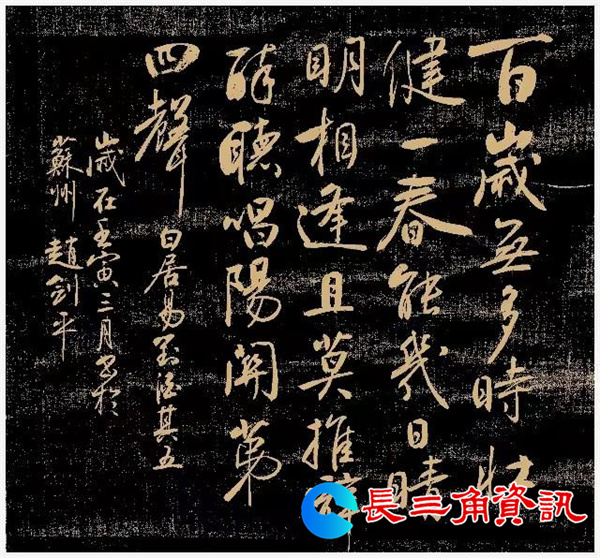 百歲無多時壯
健一春能幾日晴
明相逢且莫推辭
醉聽唱陽關第
四聲
白居易對酒其五
歲在壬寅三月書於
蘇州 趙劍平
長三角資訊